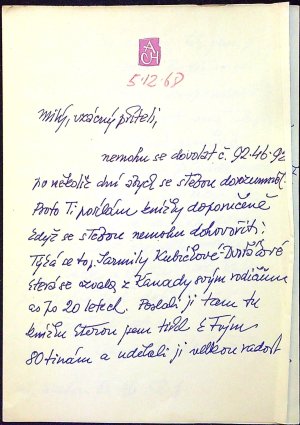 ACH
5.12.60
Milý, vzácný příteli,
nemohu se dovolat č. 92-46-92
po několik dní abych se s tebou dorozuměl.
Proto Ti posílám knížky doporučeně
když se s tebou nemohu dohovořit;
Týká se to p. Jarmily Kubíčkové-Dvořákové
která se ozvala z Kanady svým rodičům
as po 20 letech. Poslali jí tam tu
knížku kterou jsem měl k Tvým
80tinám a udělali jí velkou radost